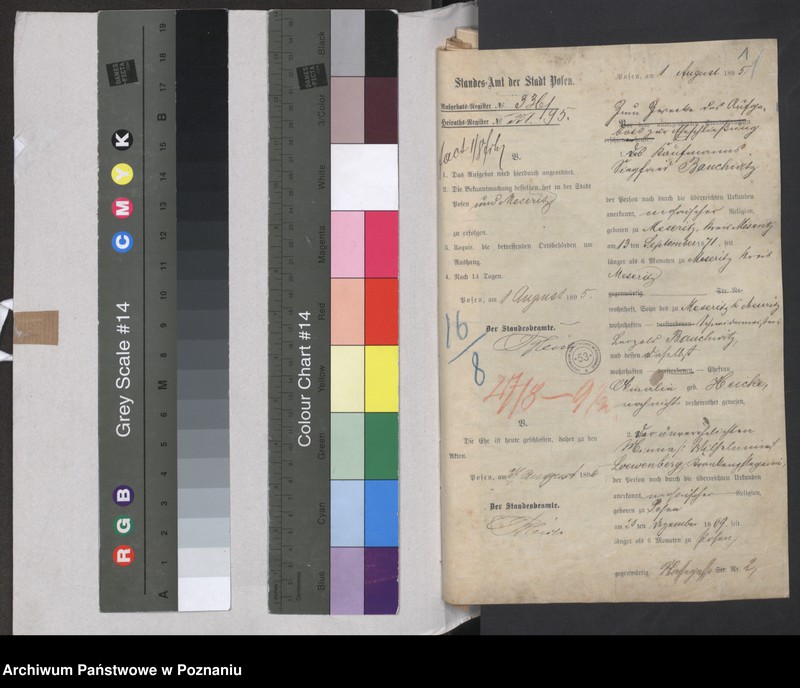 Grey Scale #14
R G B
C M Y K
A 1 2 3 4 5 6 M 8 9 10 11 12 13 14 15 B 17 18 19
Colour Chart #14
Blue
Cyan
Green
Yellow
Red
Magenta
White
3/Color
Black
DANES PICTA
Standes-Amt der Stadt Posen.
Aufgebots-Register №
Heiraths-Register № /95.
B.
1. Das Aufgebot wird hierdurch angeordnet.
2. Die Bekanntmachung desselben hat in der Stadt
Posen und Meseritz
zu erfolgen.
3. Requir. die betreffenden Ortsbehörden um
Aushang.
4. Nach 14 Tagen.
Posen, am 1 August 1895.
Der Standesbeamte.
53
16/8
B.
Die Ehe ist heute geschlossen, daher zu den
Akten.
Posen, am August 189
Der Standesbeamte.
1
Posen, am 1 August 1895.
Zum Zwecke des Aufge-
bots zur Eheschließung
des Kaufmanns
Siegfried Bauchwitz
der Person nach durch die überreichten Urkunden
anerkannt, mosaischer Religion,
geboren zu Meseritz, Kreis Meseritz
am 13 ten September 71, seit
länger als 6 Monaten zu Meseritz Kreis
Meseritz
gegenwärtig Str. Nr.
wohnhaft, Sohn des zu Meseritz
wohnhaften verstorbenen Schneidermeisters
Leopold Bauchwitz
und dessen daselbst
wohnhaften verstorbenen Ehefrau,
Amalie geb.
noch nicht verheirathet gewesen,
2. der unverehelichten
Wilhelmine
Loewenberg, Krankenpflegerin,
der Person nach durch die überreichten Urkunden
anerkannt, mosaischer Religion,
geboren zu Posen
am 23 ten Dezember 1869, seit
länger als 6 Monaten zu Posen,
gegenwärtig Str. Nr. 2,
Archiwum Państwowe w Poznaniu